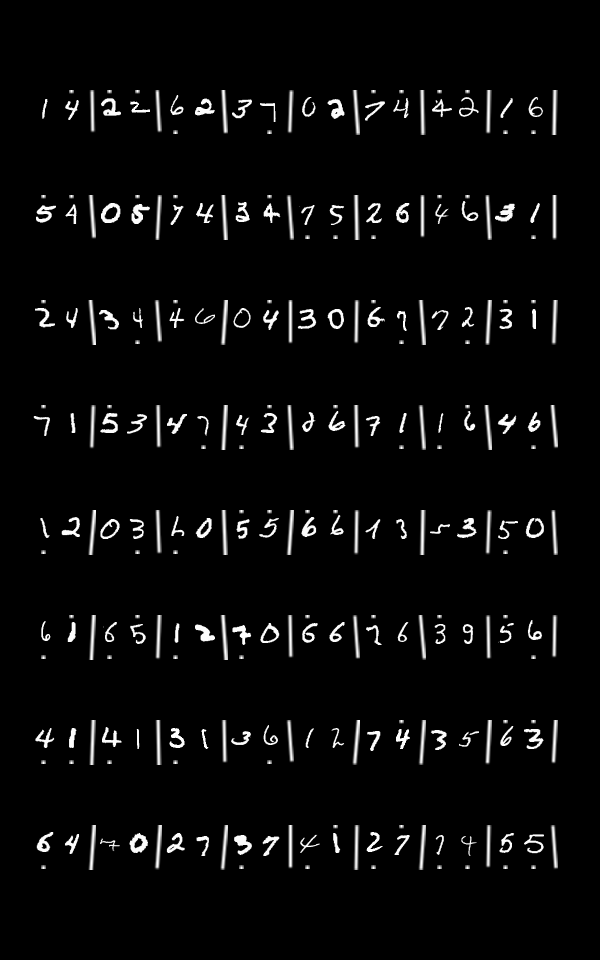 1 4̇ | 2̇ 2̇ | 6̣ 2 | 3 7̣ | 0 2 | 7̇ 4̇ | 4̇ 2̇ | 1̣ 6̣ |
5̇ 4̇ | 0 5̇ | 7̇ 4 | 3̇ 4̇ | 7̣ 5̣ | 2̣ 6 | 4̇ 6̇ | 3 1̣ |
2̇ 4 | 3 4̣ | 4̇ 6 | 0 4̇ | 3 0 | 6̇ 7̣ | 7 2̇ | 3̇ 1̣ |
7̇ 1 | 5̇ 3 | 4 7̣ | 4̣ 3̇ | 2 6̇ | 7 1̣ | 1̣ 6̇ | 4 6̣ |
1̣ 2 | 0 3̇ | 6̣ 0 | 5̇ 5̇ | 6̇ 6̇ | 1 3 | 5 3 | 5̣ 0 |
6̣ 1̇ | 6̣ 5̇ | 1̣ 2 | 7̣ 0 | 6̇ 6 | 7̇ 6 | 3̇ 9 | 5̇ 6̣ |
4̣ 1̣ | 4̣ 1 | 3̣ 1 | 3 6̣ | 1 2 | 7 4̇ | 3 5 | 6̇ 3̇ |
6̣ 4 | 7̣ 0 | 2 7 | 3̣ 7 | 4 1̇ | 2̣ 7̇ | 7̣ 4 | 5̣ 5̣ |